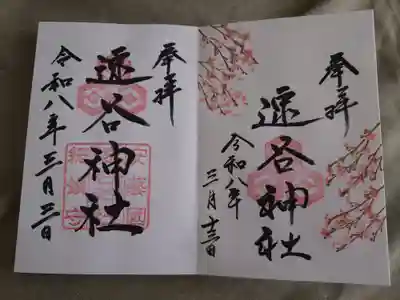 奉拝
速谷神社
令和八年
三月十三日
奉拝
速谷神社
令和八年三月三日
安藝國